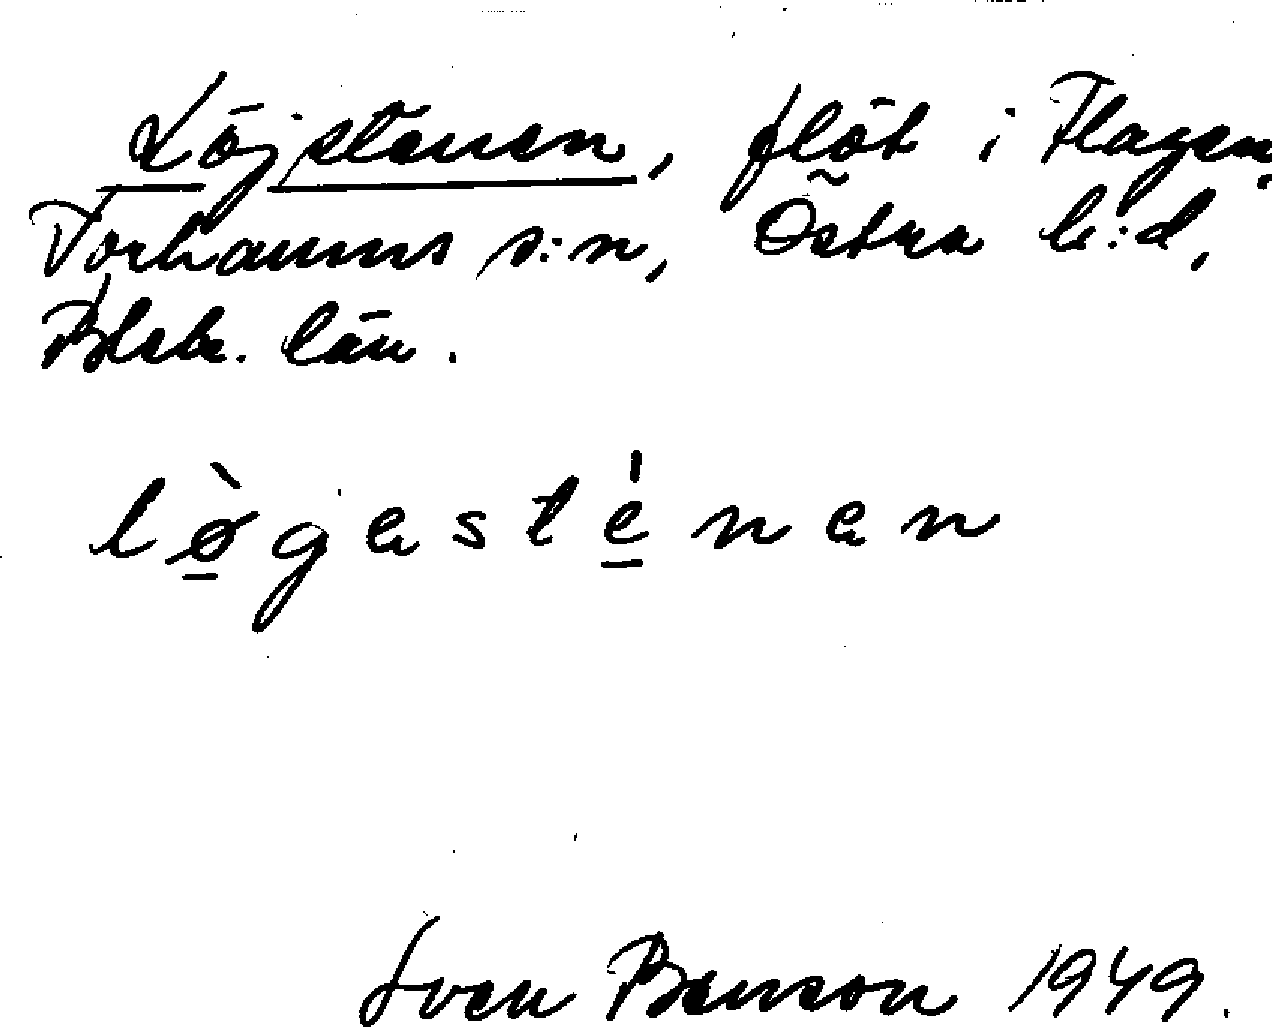 Löjstenen, flöt i Flagen,
Torhamns s:n, Östra h:d,
Blek. län.
lø̀gasténan
Sven Benson 1949.